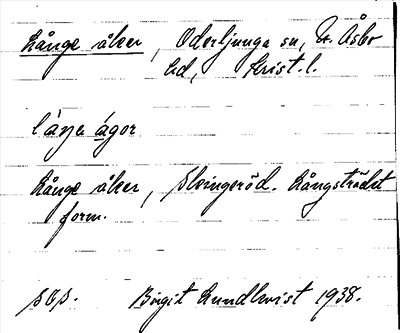 Långe åker, Oderljunga sn, N. Åsbo
hd, Krist. l.
långe ågor
Långe åker, Slingeröd. Långsträckt
form.
Birgit Lundkvist 1938.